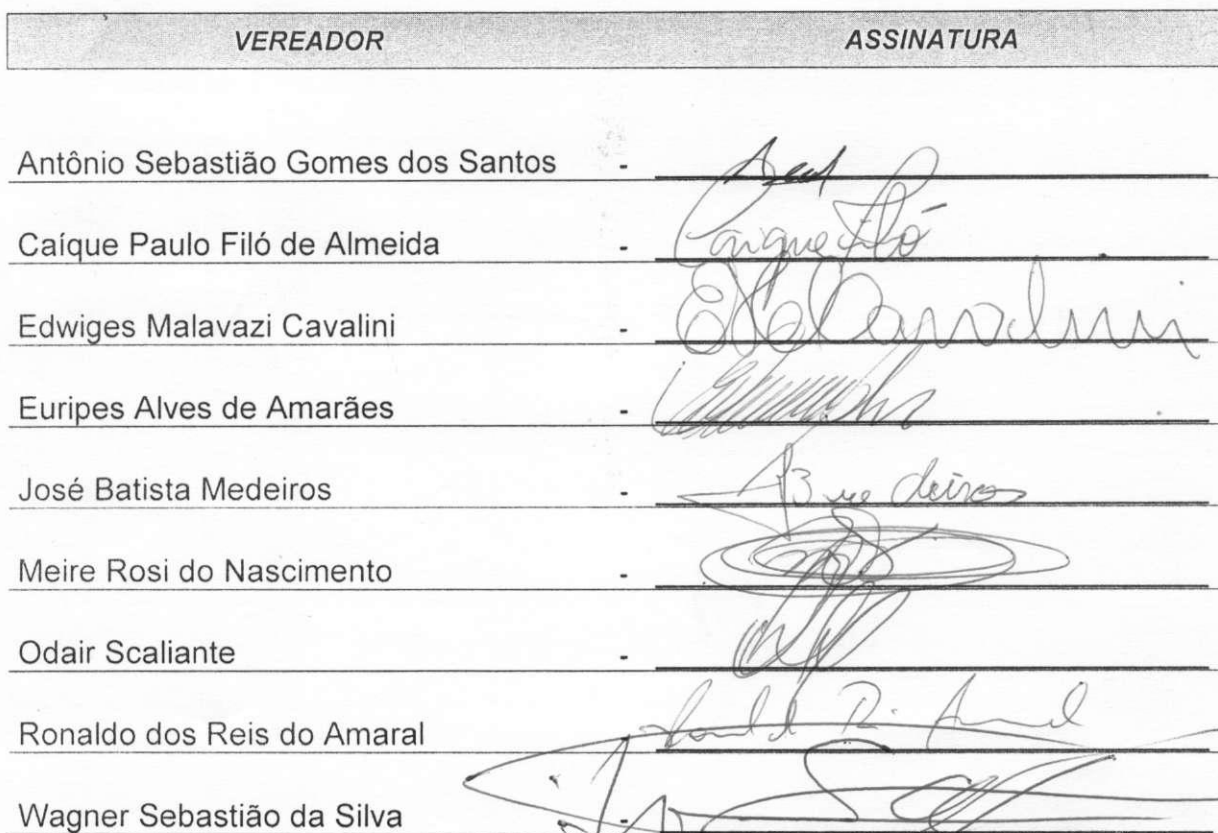 VEREADOR ASSINATURA
Antônio Sebastião Gomes dos Santos -
Caíque Paulo Filó de Almeida - Caíque Filó
Edwiges Malavazi Cavalini -
Euripes Alves de Amarães -
José Batista Medeiros - JBMedeiros
Meire Rosi do Nascimento -
Odair Scaliante -
Ronaldo dos Reis do Amaral - Ronald R. Amaral
Wagner Sebastião da Silva -